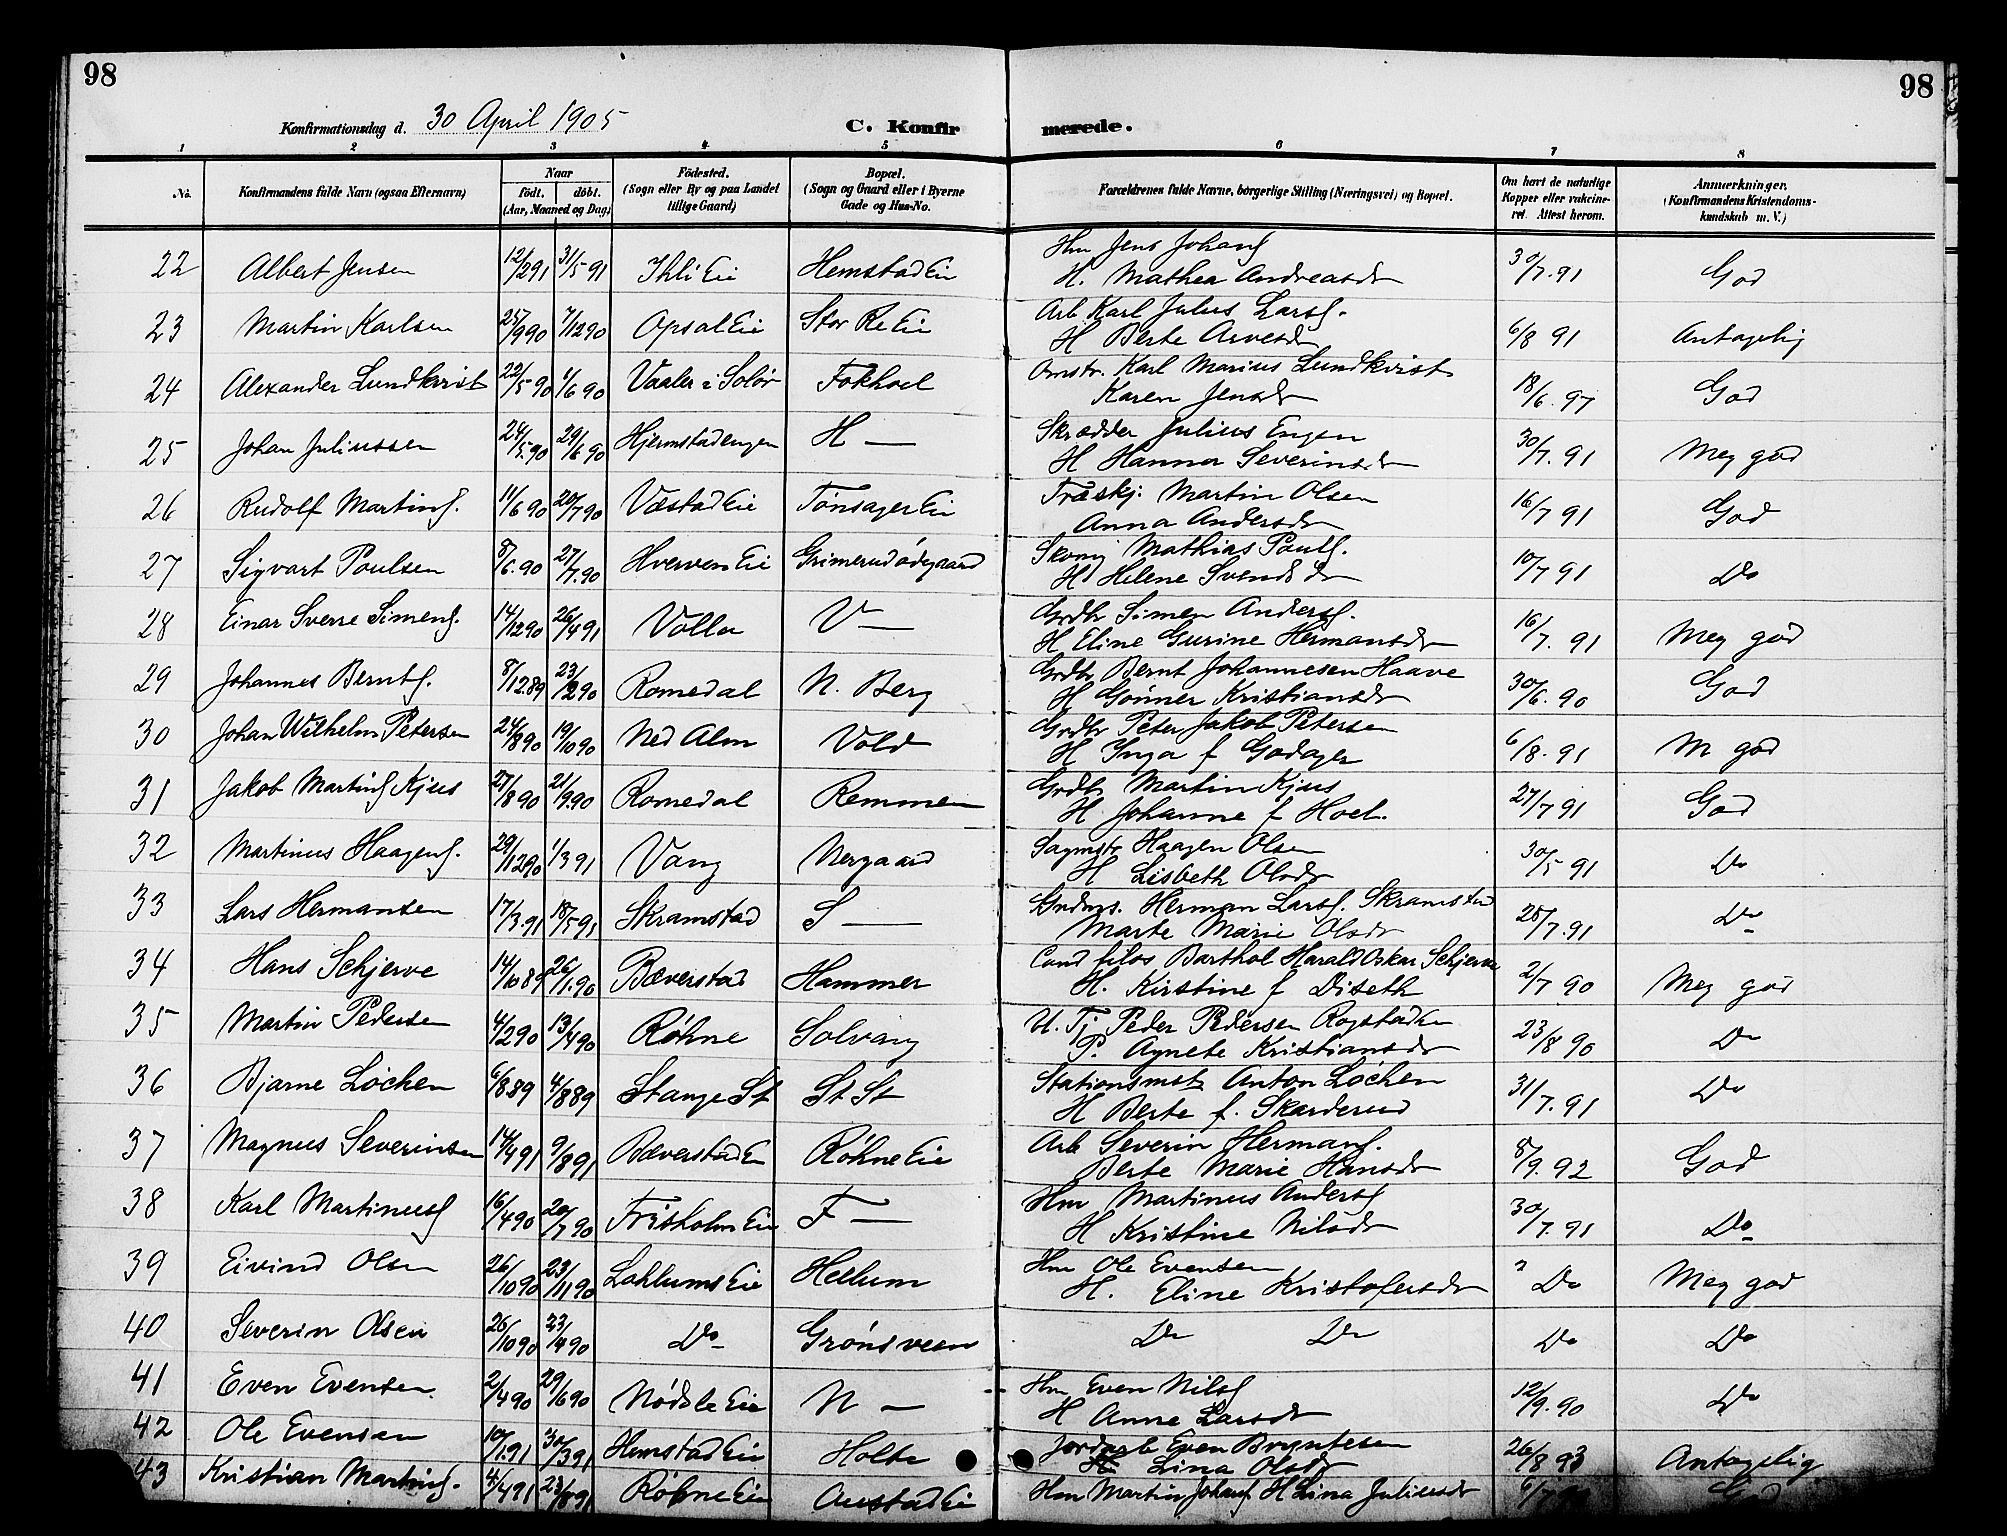 98
98
Konfirmationsdag d. 30 April 1905
C. Konfirmerede.
1 2 3 4 5 6 7 8
No. Konfirmandens fulde Navn (ogsaa Efternavn) Naar födt. döbt. (Aar, Maaned og Dag) Födested. (Sogn eller By og paa Landet tillige Gaard) Bopæl. (Sogn og Gaard eller i Byerne Gade og Hus-No. Forældrenes fulde Navne, borgerlige Stilling (Næringsvei) og Bopæl. Om havt de naturlige Kopper eller vakcineret. Attest herom. Anmærkninger. (Konfirmandens Kristendomskundskab m. V.)
22 Albert Jensen 12/2 91 31/5 91 Ihli Eie Hemstad Eie Hm Jens Johans H. Mathea Andreasdr 30/7.91 God
23 Martin Karlsen 25/9 90 7/12 90 Opsal Eie Stor Re Eie Arb Karl Julius Larss. H Berte Arvesdr 6/8 91 Antagelig
24 Alexander Lundkvist 22/5 90 1/6 90 Vaaler i Solör Fokhoel Omstr. Karl Marius Lundkvist Karen Jensdr 18/6.97 God
25 Johan Juliussen 24/5.90 29/6 90 Hjermstadengen H — Skrædder Julius Engen H Hanna Severinsdr 30/7.91 Meg god
26 Rudolf Martins. 11/6 90 20/7 90 Væstad Eie Tönsager Eie Træskj. Martin Olsen Anna Andersdr 16/7 91 God
27 Sigvart Poulsen 8/6.90 27/7.90 Hverven Eie Grimerudödegaard Skom Mathias Pouls. H Helene Svendsdr 10/7 91 Do
28 Einar Sverre Simens. 14/12 90 26/4 91 Volla V — Grdbr Simen Anders. H Eline Gurine Hermansdr 16/7.91 Meg god
29 Johannes Bernts. 8/12 89 23/2 90 Romedal N. Berg Grdbr Bernt Johannesen Haave H Gönner Kristiansdr 30/6.90 God
30 Johan Wilhelm Petersen 24/8 90 19/10 90 Ned Alm Vold Grdbr Peter Jakob Petersen H Inga f Godager 6/8.91 M god
31 Jakob Martins Kjus 27/8 90 21/9 90 Romedal Remmen Grdbr Martin Kjus H Johanne f Hoel. 27/7 91 God
32 Martinus Haagens. 29/12 90 1/3 91 Vang Nergaard Sagmstr Haagen Olsen H Lisbeth Olsdr 30/5 91 Do
33 Lars Hermansen 17/3 91 18/5 91 Skramstad S — Herman Larss. Skramstad Marte Marie Olsdr 25/7.91 Do
34 Hans Schjerve 14/10 89 26/1.90 Bæverstad Hammer Cand filos Barthol Harald Oskar Schjerve H. Kirstine f Diseth 2/7 90 Meg god
35 Martin Pedersen 4/2 90 13/4 90 Röhne Solvang U. Tj Peder Pedersen P. Agnete Kristiansdr 23/8 90 Do
36 Bjarne Löchen 6/8 89 4/8 89 Stange St St St Stationsmstr Anton Löchen H Berte f. Skarderud 31/7.91 Do
37 Magnus Severinsen 14/4 91 9/8 91 Bæverstad E Röhne Eie Arb Severin Hermans. Berte Marie Hansdr 8/9.92 God
38 Karl Martinus 16/4 90 20/7 90 Frisholm Eie F — Hm Martinus Anders H Kristine Nilsdr 30/7.91 Do
39 Eivind Olsen 26/10 90 23/11 90 Lahlums Eie Hellum Hm Ole Evensen H. Eline Kristofersdr Do Meg god
40 Severin Olsen 26/10 90 Do Grönsveen Do Do Do Do
41 Even Evensen. 2/4 90 29/6 90 Nödsle Eie N — Hm Even Nils H Anne Larsdr 12/9.90 Do
42 Ole Evensen 10/1.91 30/3 91 Hemstad Eie Holte Even Bryntesen H Lina Olsdr 26/8 93 Antagelig
43 Kristian Martins. 4/4 91 23/8 91 Röhne Eie Austad Eie Hm Martin Johans H Lina Juliusdr God